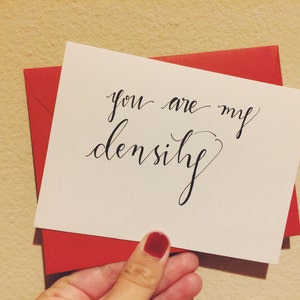 you are my
density